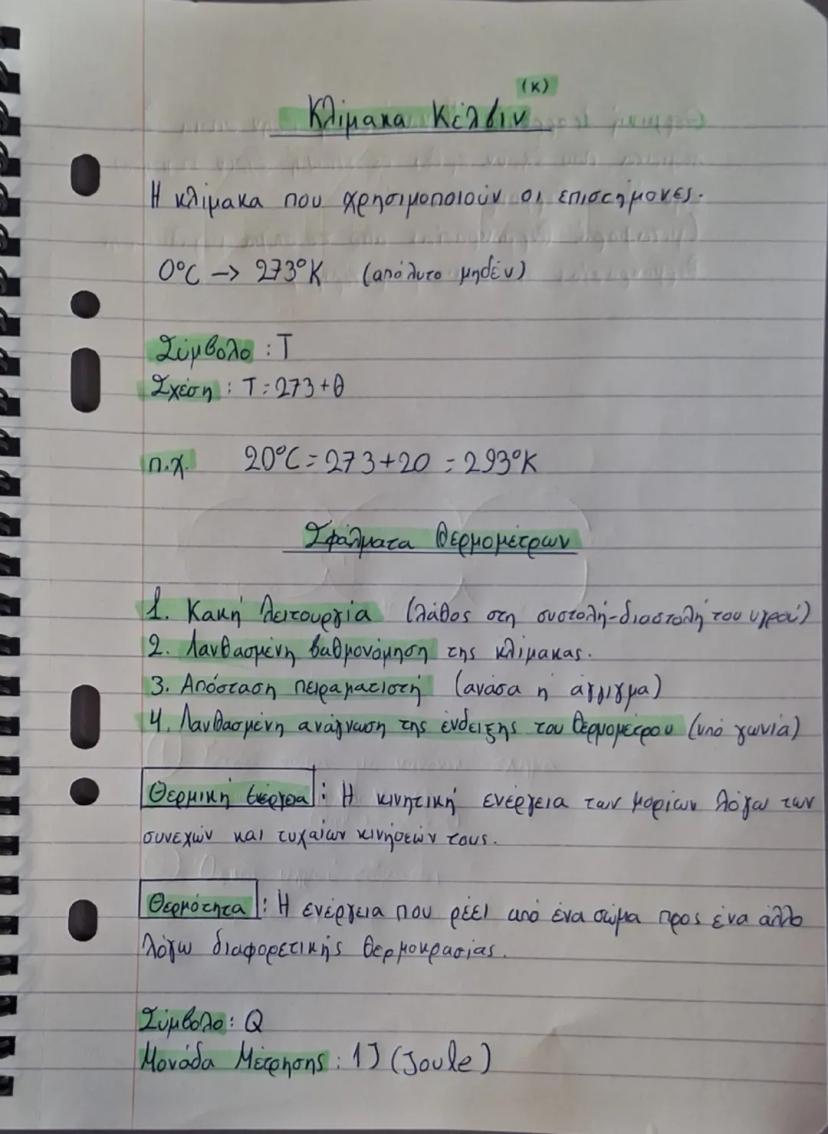 (κ)
Κλίμακα Κέλβιν
Η κλίμακα που χρησιμοποιούν οι επιστήμονες.
0°C → 273°K (απόλυτο μηδέν)
Σύμβολο : T
Σχέση : T = 273 + θ
π.χ. 20°C = 273 + 20 = 293°K
Σφάλματα Θερμομέτρων
1. Κακή λειτουργία (λάθος στη συστολή-διαστολή του υγρού)
2. Λανθασμένη βαθμονόμηση της κλίμακας.
3. Απόσταση πειραματιστή (ανάσα ή άγγιγμα)
4. Λανθασμένη ανάγνωση της ένδειξης του θερμομέτρου (υπό γωνία)
Θερμική Ενέργεια : Η κινητική ενέργεια των μορίων λόγω των
συνεχών και τυχαίων κινήσεών τους.
Θερμότητα : Η ενέργεια που ρέει από ένα σώμα προς ένα άλλο
λόγω διαφορετικής θερμοκρασίας.
Σύμβολο : Q
Μονάδα Μέτρησης : 1J (Joule)